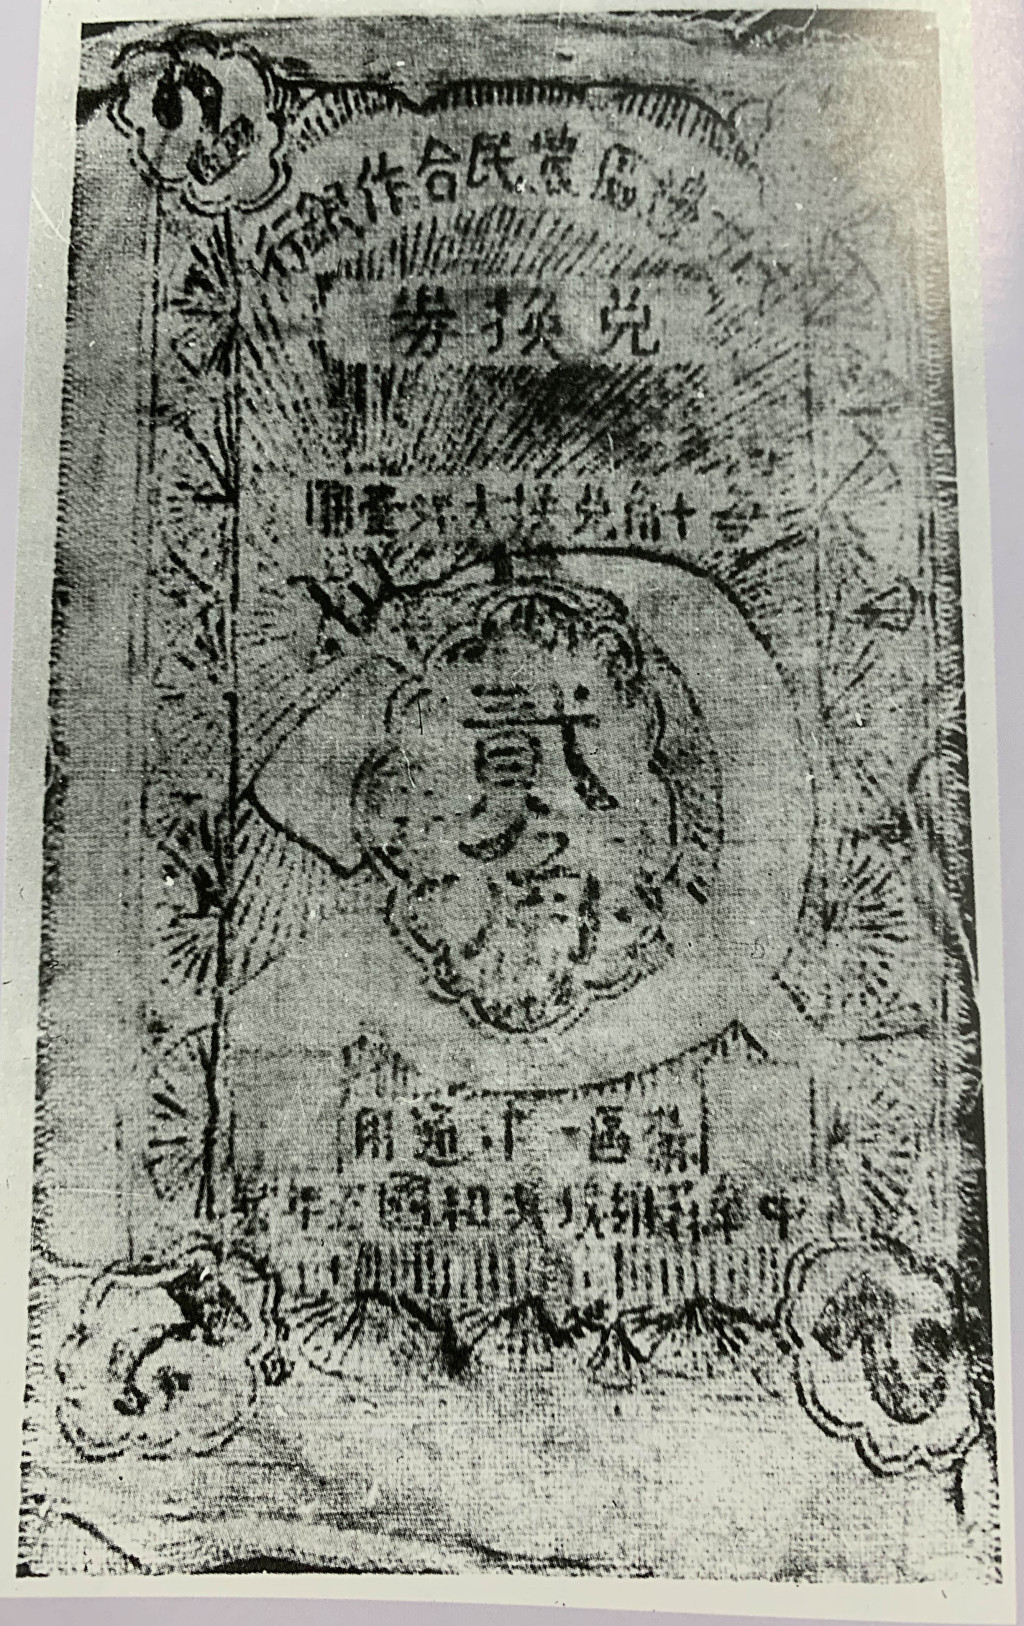 區農民合作銀行
兌換券
十角兌換大洋壹圓
貳角
蘇區一通用
中華蘇維埃共和國年